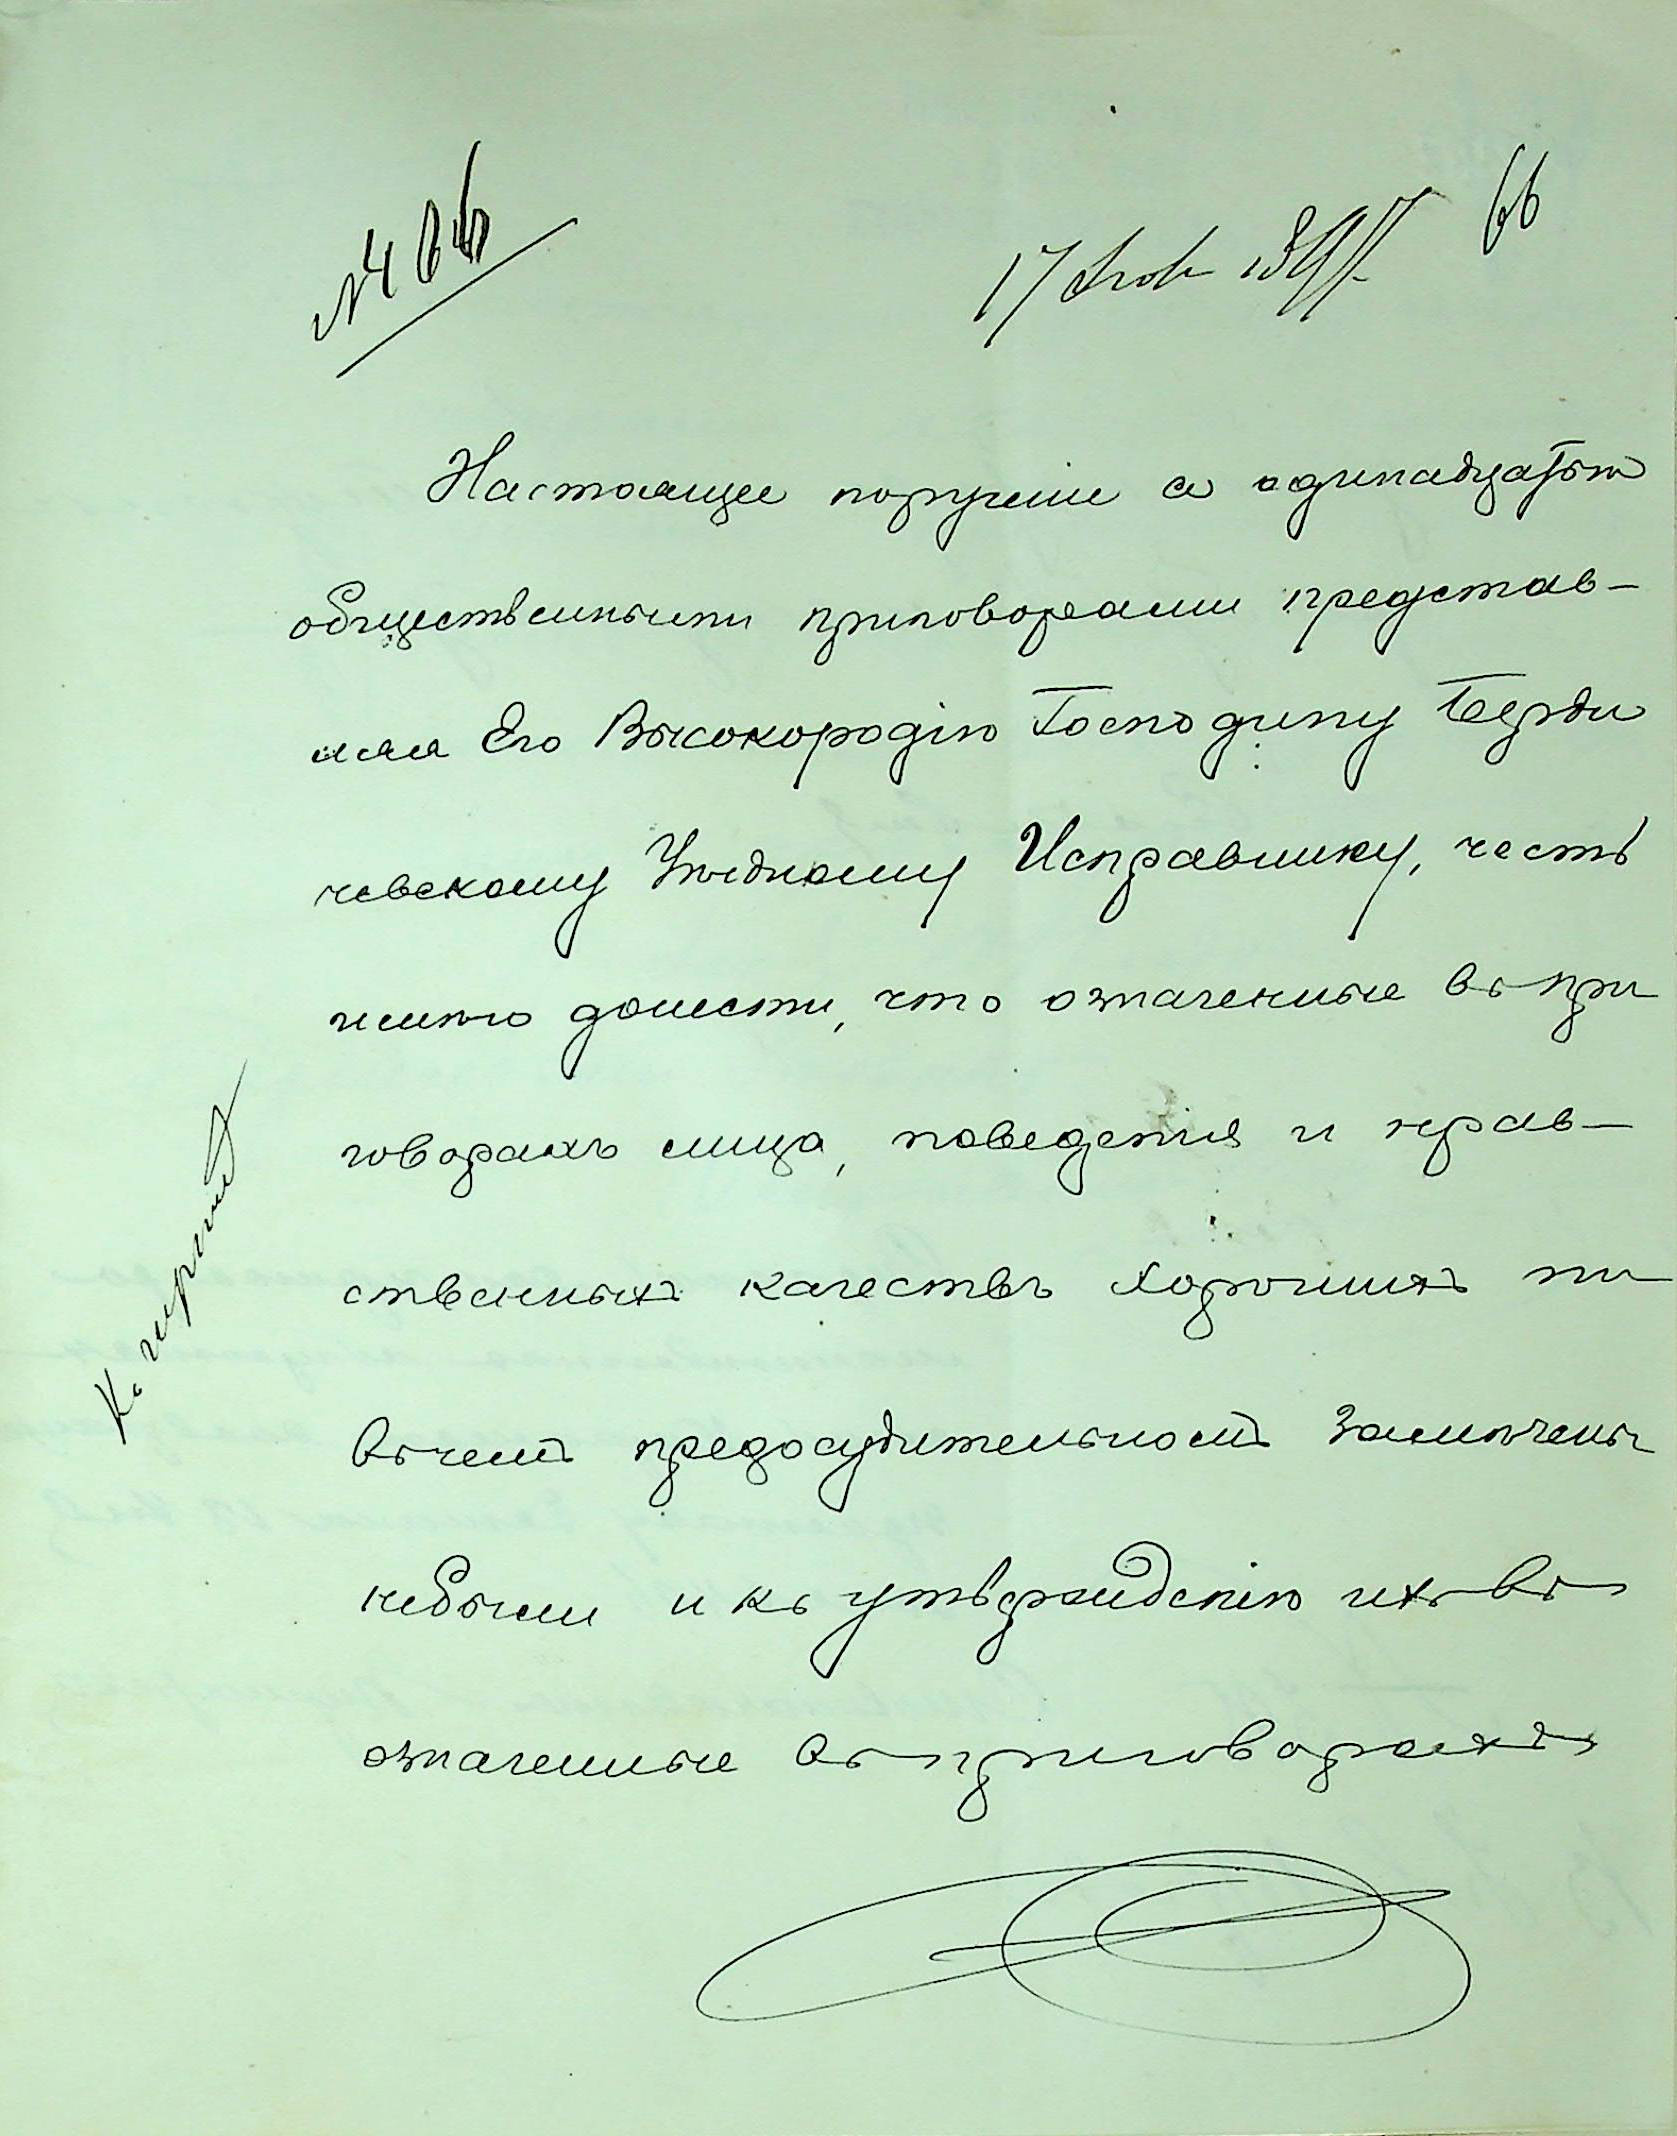 № 466
17 Янв 1897 г. 66
Настоящее порученіе съ одинадцатью
общественными приговорами представ-
ляя Его Высокородію Господину Берди
чевскому Уѣздному Исправнику, честь
имѣю донести, что означенные въ при
говорахъ лица, поведенія и нрав-
ственныхъ качествъ хорошихъ ни
въ чемъ предосудительномъ замѣчены
небыли и къ утвержденію ихъ въ
означенные въ приговорахъ